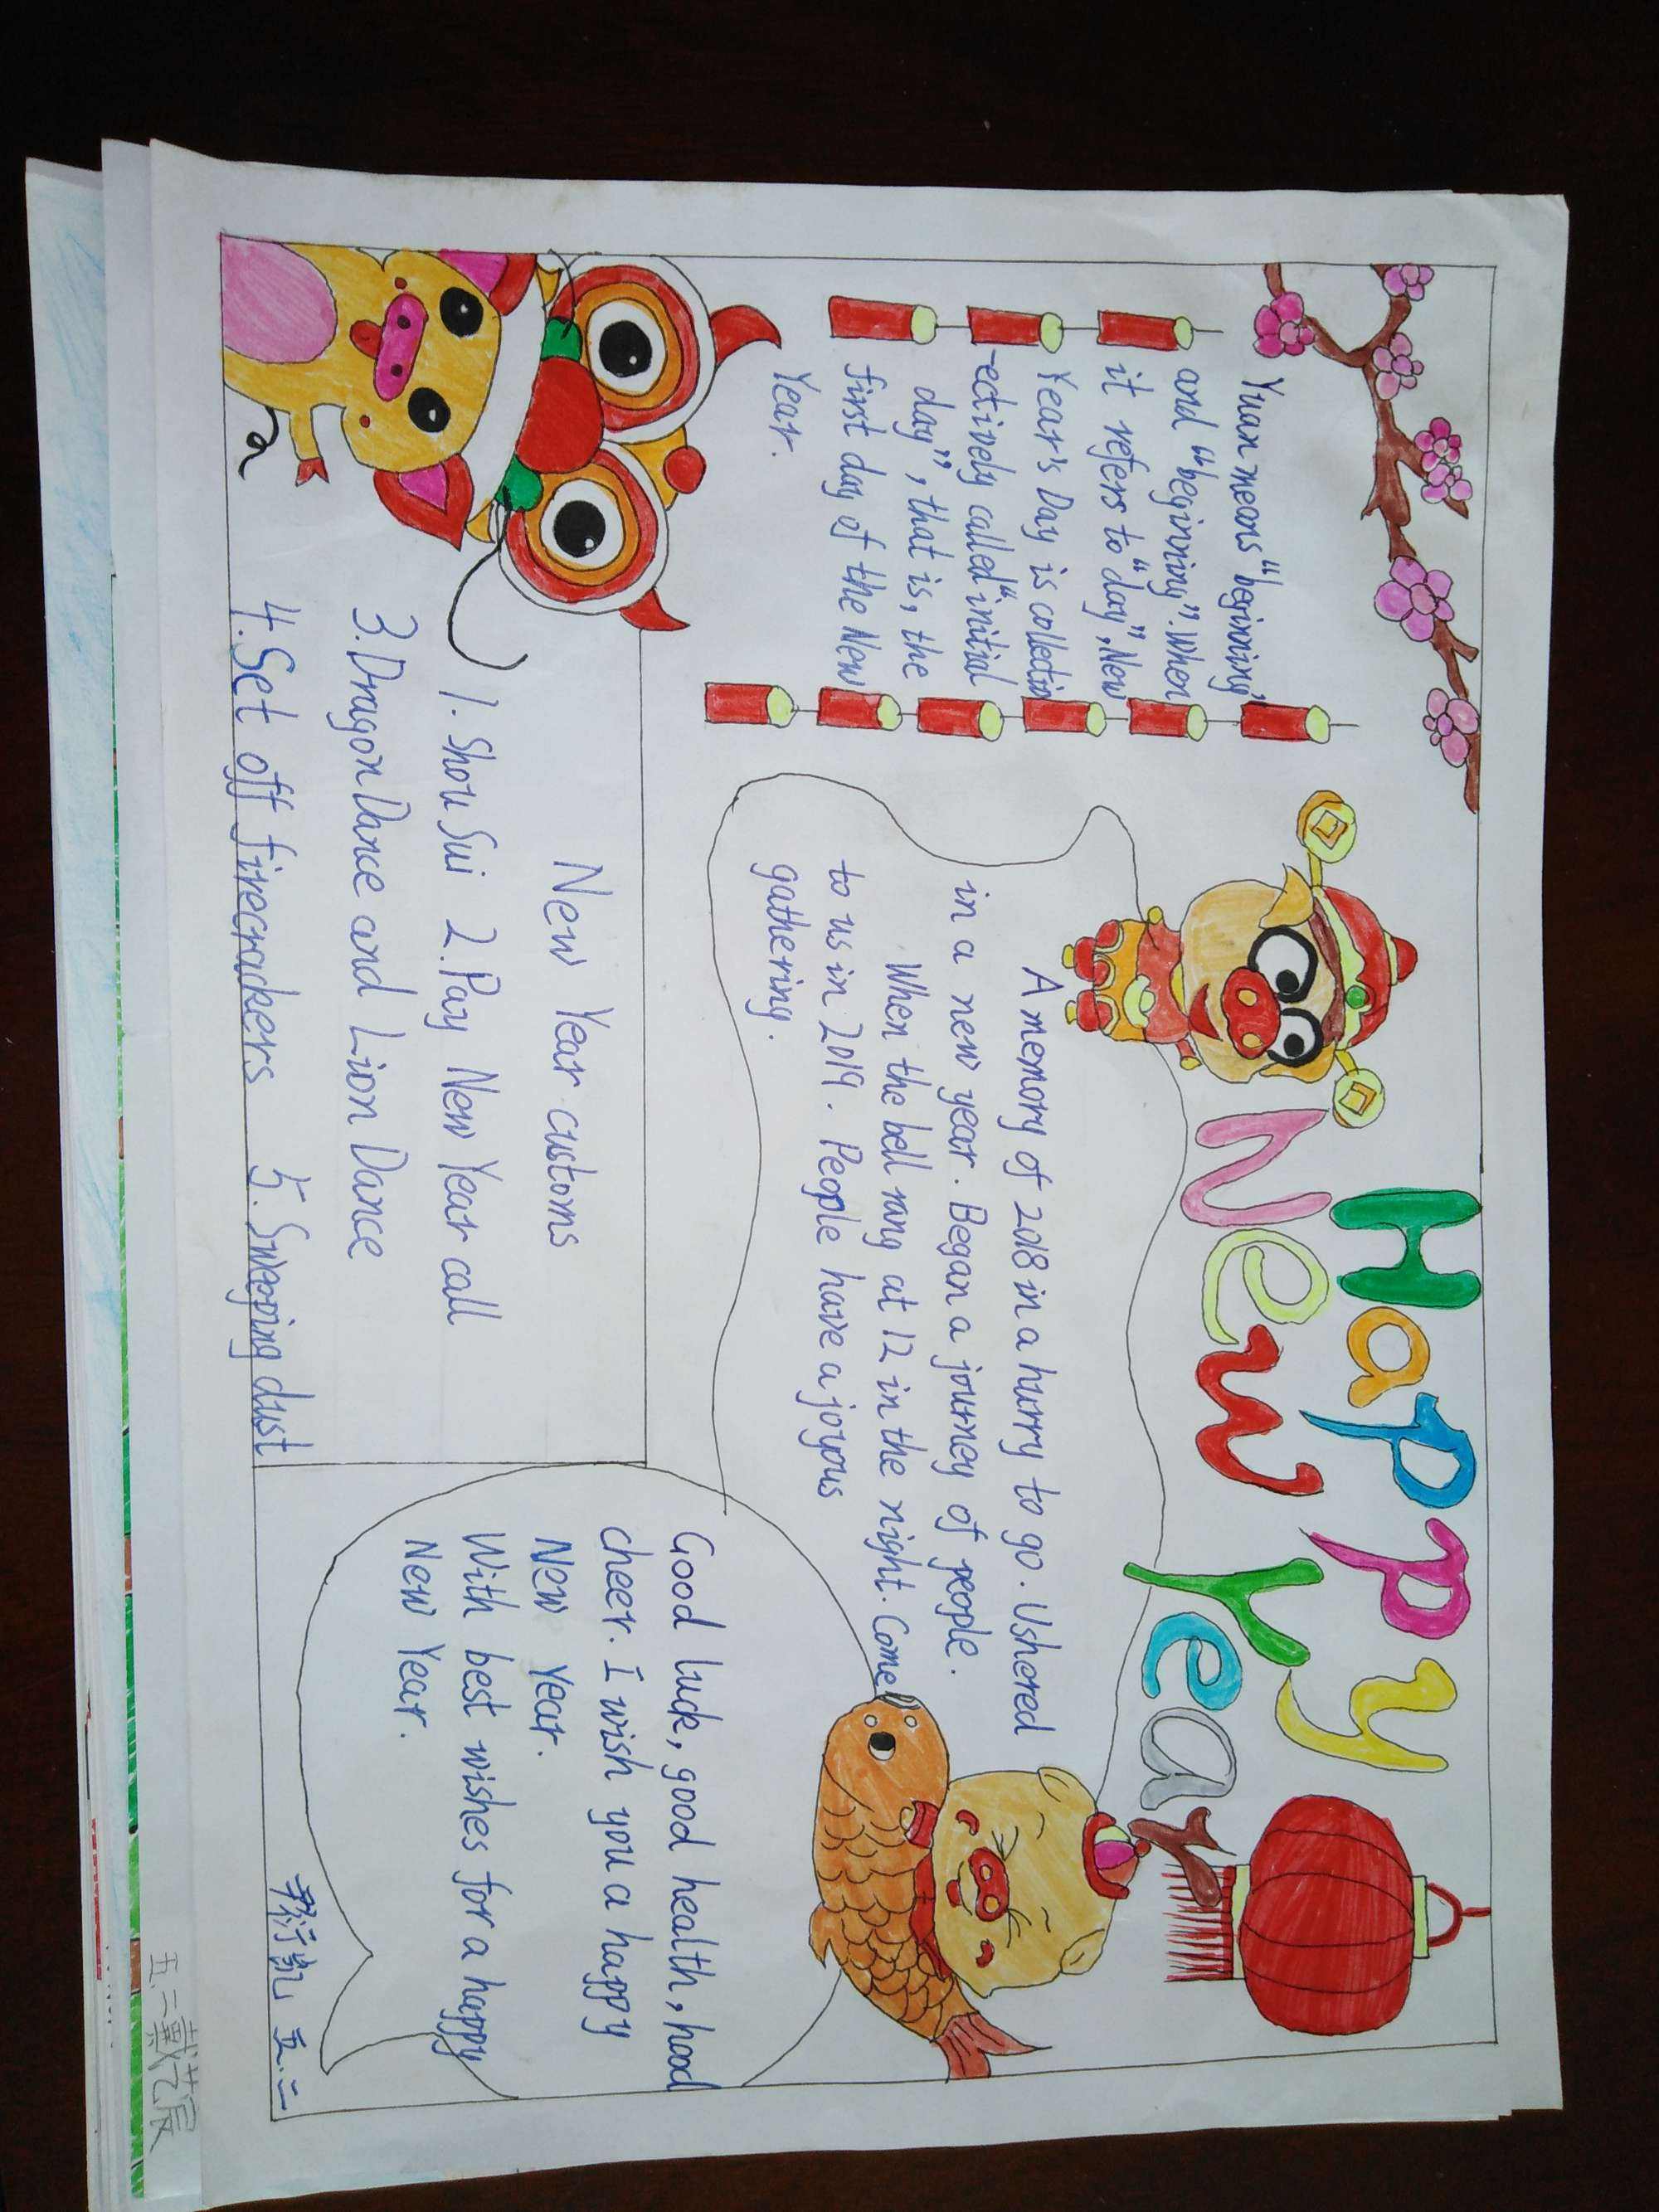 Happy
New Year
Yuan means "beginning"
and "beginning". When
it refers to "day", New
Year's Day is collectio
-ectively called "initial
day", that is, the
first day of the New
Year.
A memory of 2018 in a hurry to go. Ushered
in a new year. Began a journey of people.
When the bell rang at 12 in the night. Come
to us in 2019. People have a joyous
gathering.
New Year customs
1. Shou Sui 2. Pay New Year call
3. Dragon Dance and Lion Dance
4. Set off firecrackers 5. Sweeping dust
Good luck, good health, hood
cheer. I wish you a happy
New Year.
With best wishes for a happy
New Year.
五.二
五.二戴艺展